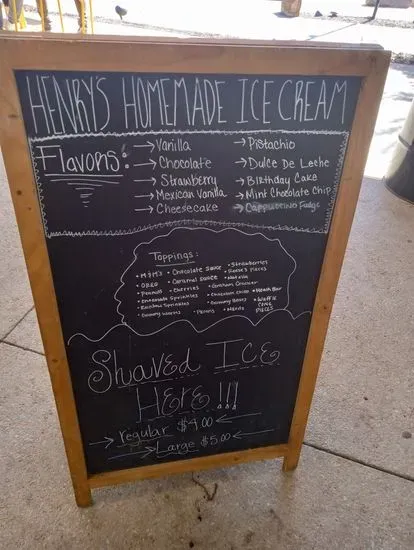 HENRY'S HOMEMADE ICE CREAM
Flavors:
→Vanilla
→Chocolate
→Strawberry
→Mexican Vanilla
→Cheesecake
→Pistachio
→Dulce De Leche
→Birthday Cake
→Mint Chocolate Chip
→Cappuccino Fudge
Toppings:
• M&M's • Chocolate Sauce • Strawberries
• OREO • Caramel Sauce • Reese's Pieces
• Peanuts • Cherries • Graham Cracker
• Chocolate Sprinkles • Chocolate Chips • Heath Bar
• Rainbow Sprinkles • Gummy Bears • Waffle Cone Pieces
• Gummy Worms • Pecans
Shaved Ice
Here!!!
→ Regular $4.00 ←
→ Large $5.00 ←